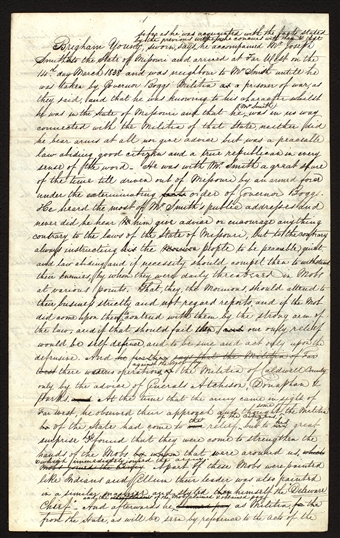 so far as he was acquainted with the facts stated
by the previous witnesses concurs with them &
Brigham Young, sworn, says, he accompanied Mr Joseph
Smith to the State of Missouri and arrived at Far West on the
14th day March 1838 and was neighbour to Mr Smith untill he
was taken by Governor Boggs Militia as a prisoner of war, as
they said, and that he was knowing to his character whilst
he was in the State of Missouri and that he, Mr Smith, was in no way
connected with the Militia of that State, neither did
he bear arms at all, nor give advice, but was a peacable
law abiding good citizen and a true republican in every
sense of the word.— He was with Mr Smith a great share
of the time till driven out of Missouri by an armed force
under the exterminating order of Governor Boggs
He heard the most of Mr Smith's public addresses and
never did he hear him give advice or encourage anything
contrary to the laws of the State of Missouri, but to the contrary
always instructing his the Mormon people to be peacable, quiet
and law abiding and if necessity should compel them to withstand
their Enemies, by whom they were daily threatened in Mobs
at various points. That they, the Mormons, should attend to
their business strictly and not regard reports and if the Mob
did come upon them, contend with them by the strong arm of
the law; and if that should fail our only relief
would be self defence; and to be sure and act only upon the
defensive. And
there were no operations against the Mobs by the Militia of Caldwell County
only by the advice of Generals Atchison, Doniphan &
Parks. At the time that the army came in sight of
Far West, he observed their approach & thought some of the Militia
of the State had come to the relief of the citizens, but to his great
surprise found that they were come to strengthen the
hands of the Mobs that were around us, which
immediately joined the army. A part of these Mobs were painted
like Indians and Gillum their leader was also painted
in a similar manner and styled himself the "Delaware
Chief" and afterwards he as Militia, for the
from the State, as will be seen by reference to the acts of the